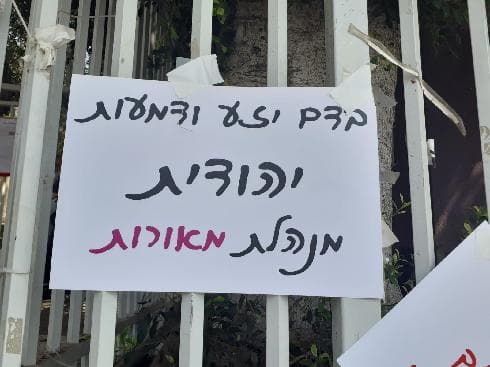 בדם יזע ודמעות
יהודית
מנהלת מאורות